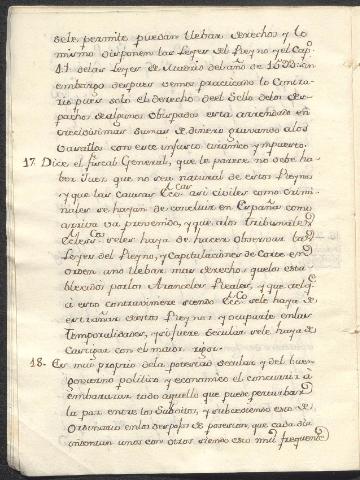 se le permite puedan llebar derechos y lo
mismo disponen las Leyes del Reyno y el Cap.
de las Leyes de Madrid del año de sin
embargo despues vemos practicado lo Contra
rio pues solo el derecho del Sello de los des
pachos de algunos obispados esta arrendado en
crecidissimas sumas de dinero gravando a los
Vasallos con este injusto tiranico impuesto.
17. Dice el fiscal General, que le parece no debe ha
ber Juez que no sea natural de estos Reynos
y que las causas Ecc.cas asi civiles como Crimi
nales se hayan de concluir en España como
arriva va prevenido, y que a los tribunales
Ecless.cos se les haya de hacer observar las
Leyes del Reyno, y Capitulaciones de Cortes en
orden a no llebar mas derechos que los esta
blecidos por los Aranceles Reales, y que al q.e
a esto contraviniere siendo Ecc.co se le haya de
estrañar de estos Reynos y ocuparle en las
Temporalidades, y si fuere secular se le haya de
Castigar con el maior rigor.
18. Es mui proprio de la potestad secular y del buen
govierno politico y economico el concurrir a
embarazar todo aquello que puede perturbar
la paz entre los Subditos, y subcediendo esto de
ordinario en los despojos de posesion, que cada dia
intentan unos con otros siendo esto mui frequente